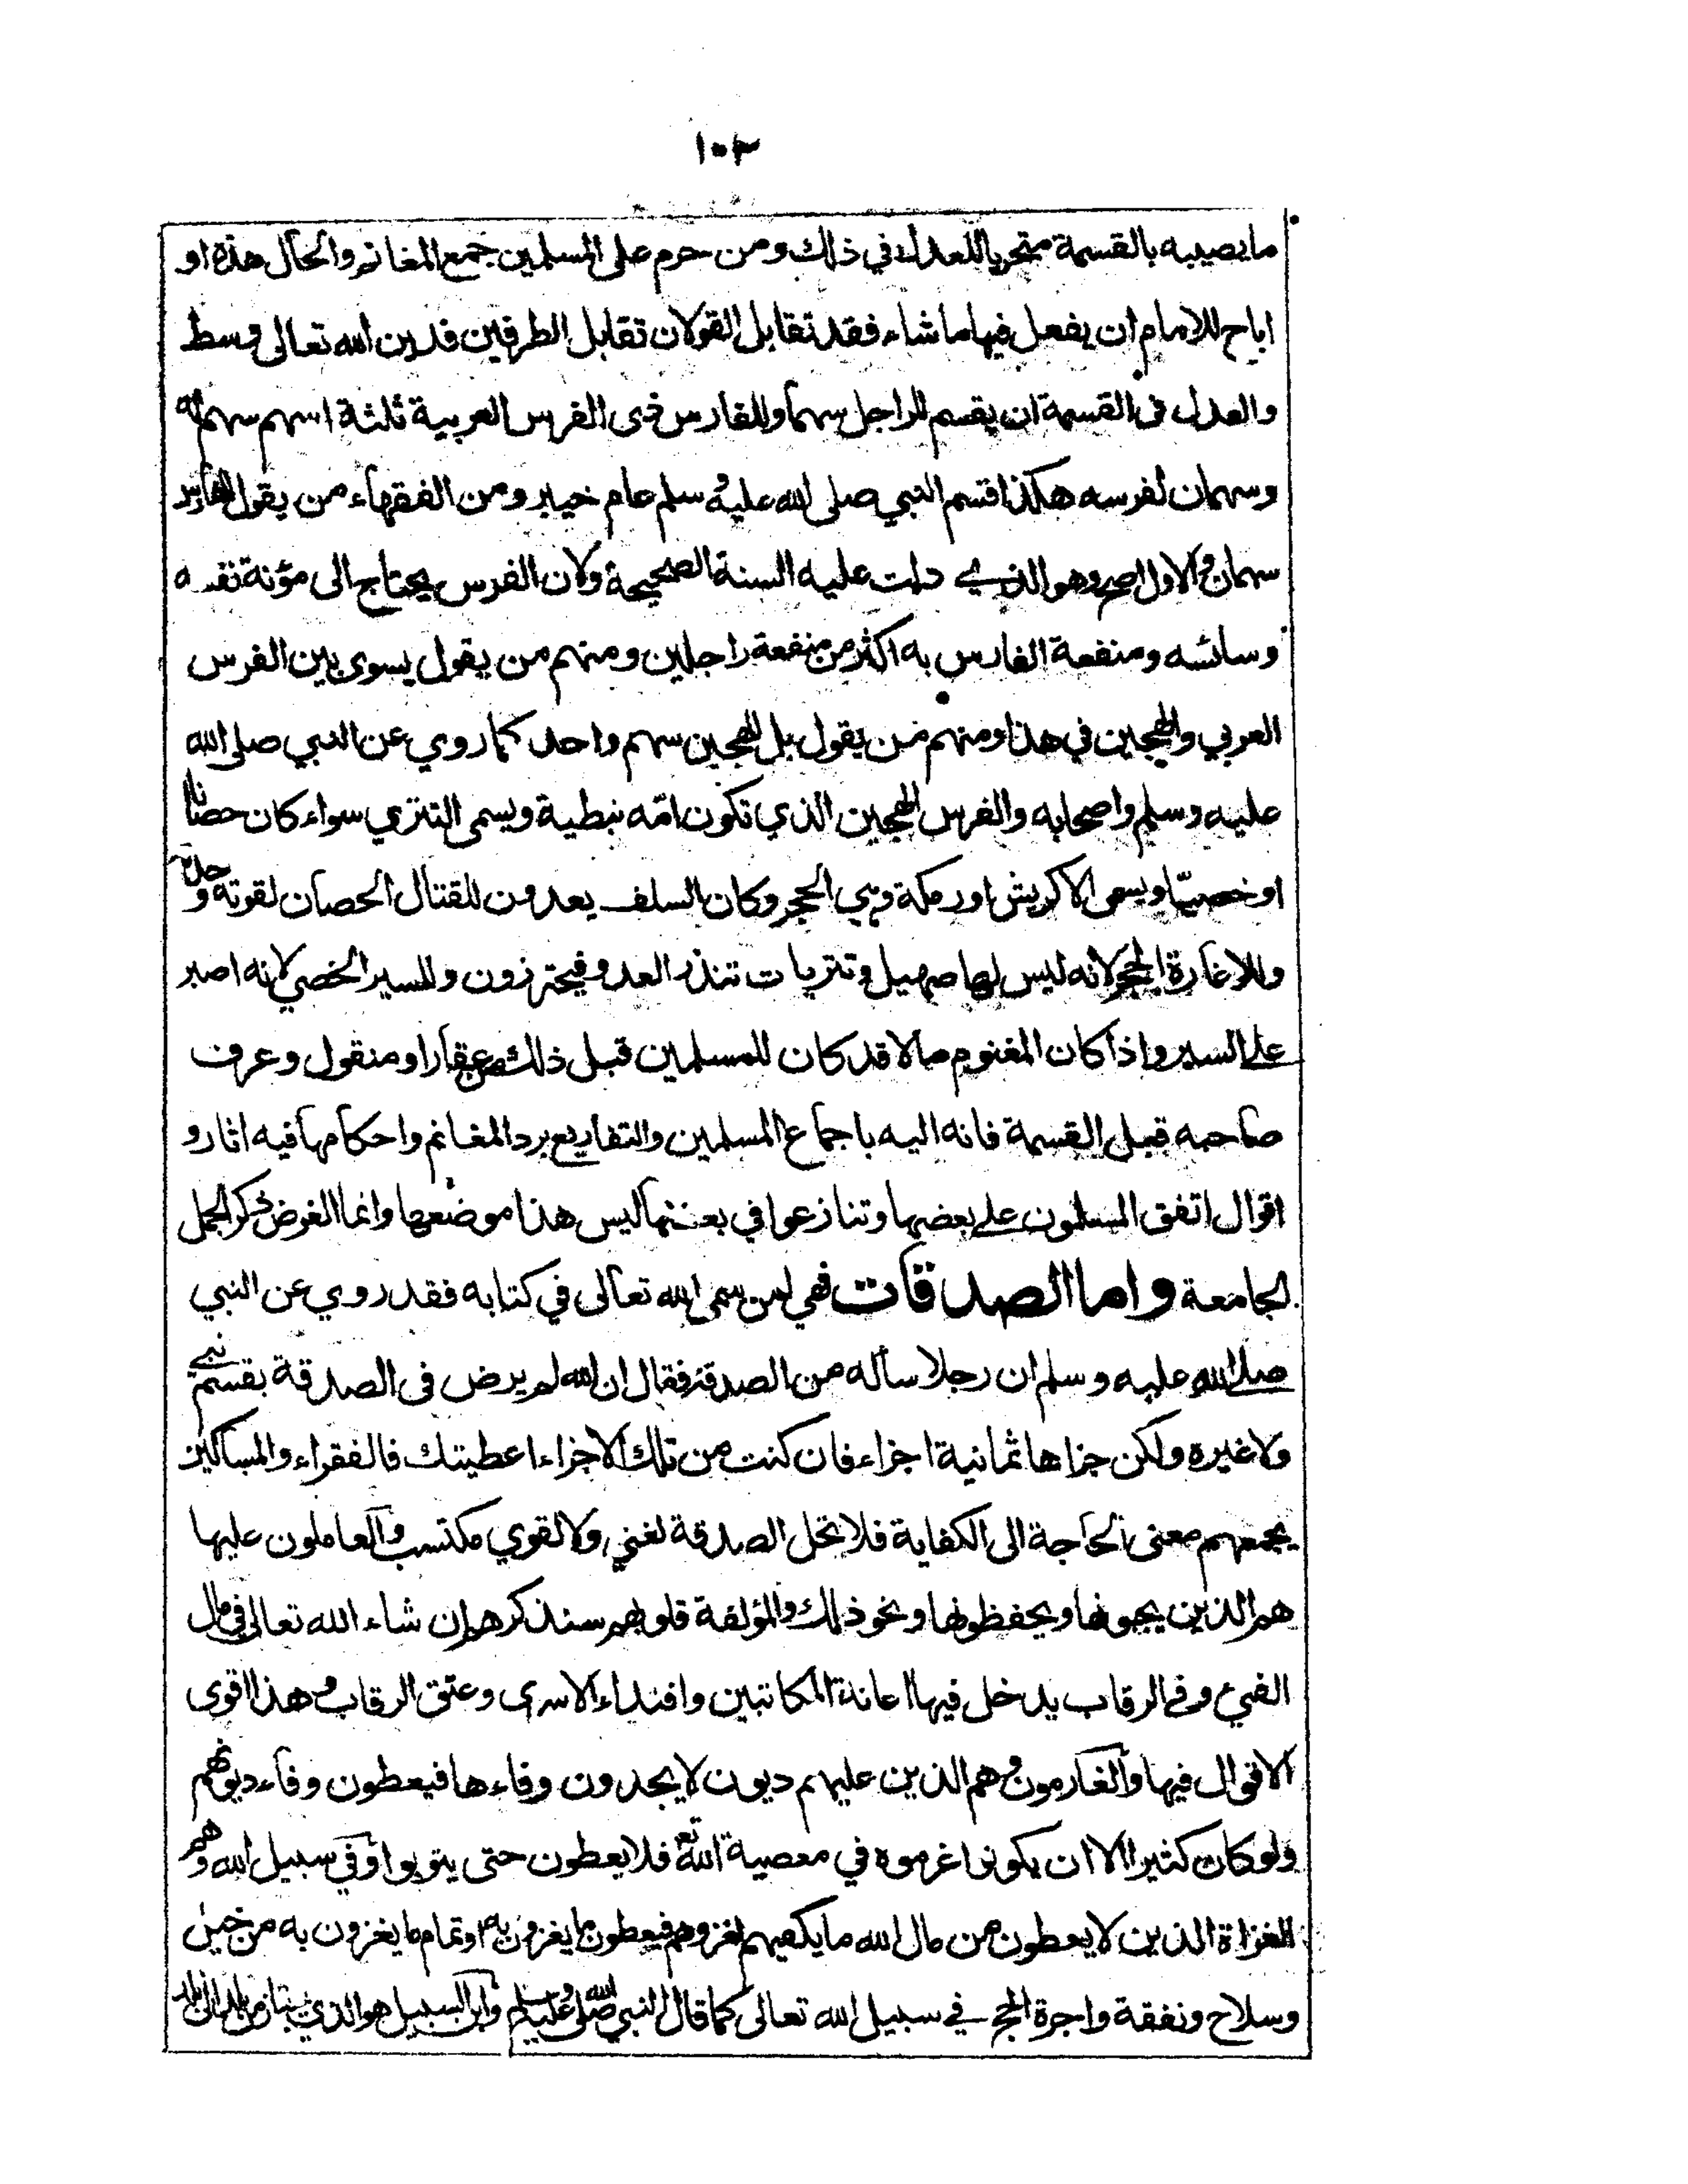 ١٠٣
ما يصيبه بالقسمة متحريا للعدل في ذلك ومن حرم على المسلمين جمع المغانم والحال هذه او
اباح للامام ان يفعل فيها ما شاء فقد تقابل القولان تقابل الطرفين فدين الله تعالى وسط
والعدل فى القسمة ان يقسم للراجل سهما وللفارس ذى الفرس العربية ثلثة اسهم سهم له
وسهمان لفرسه هكذا قسم النبي صلى الله عليه وسلم عام خيبر ومن الفقهاء من يقول للفارس
سهمان والاول اصح وهو الذي دلت عليه السنة الصحيحة ولان الفرس يحتاج الى مؤنة نفسه
وسائسه ومنفعة الفارس به اكثر من منفعة راجلين ومنهم من يقول يسوى بين الفرس
العربي والهجين في هذا ومنهم من يقول بل الهجين سهم واحد كما روي عن النبي صلى الله
عليه وسلم واصحابه والفرس الهجين الذي تكون امّه نبطية ويسمى التتري سواء كان حصانا
او خصيّا ويسمى الاكديش او رمكة وهي الحجر وكان السلف يعدون للقتال الحصان لقوته وحدّته
وللاغارة الحجر لانه ليس لها صهيل وتتريات تنذر العدو فيحترزون وللسير الخصي لانه اصبر
على السير واذا كان المغنوم مالا قد كان للمسلمين قبل ذلك من عقار او منقول وعرف
صاحبه قبل القسمة فانه اليه باجماع المسلمين والتفاريع برد المغانم واحكامها فيه اثار و
اقوال اتفق المسلمون على بعضها وتنازعوا في بعضها ليس هذا موضعها وانما الغرض ذكر الجمل
الجامعة واما الصدقات فهي لمن سمى الله تعالى في كتابه فقد روي عن النبي
صلى الله عليه وسلم ان رجلا سأله من الصدقة فقال ان الله لم يرض فى الصدقة بقسم نبي
ولا غيره ولكن جزاها ثمانية اجزاء فان كنت من تلك الاجزاء اعطيتك فالفقراء والمساكين
يجمعهم معنى الحاجة الى الكفاية فلا تحل الصدقة لغني ولا لقوي مكتسب والعاملون عليها
هم الذين يجبونها ويحفظونها ونحو ذلك والمؤلفة قلوبهم سنذكرهم ان شاء الله تعالى في مال
الفيء وفى الرقاب يدخل فيها اعانة المكاتبين وافتداء الاسرى وعتق الرقاب وهذا اقوى
الاقوال فيها والغارمون وهم الذين عليهم ديون لا يجدون وفاءها فيعطون وفاء ديونهم
ولو كان كثيرا الا ان يكونوا غرموه في معصية الله تع فلا يعطون حتى يتوبوا وفي سبيل الله وهم
الغزاة الذين لا يعطون من مال الله ما يكفيهم لغزوهم فيعطون ما يغزون به او تمام ما يغزون به من خيل
وسلاح ونفقة واجرة الحج في سبيل الله تعالى كما قال النبي صلى الله عليه وسلم وابن السبيل هو الذي يجتاز من بلد الى بلد